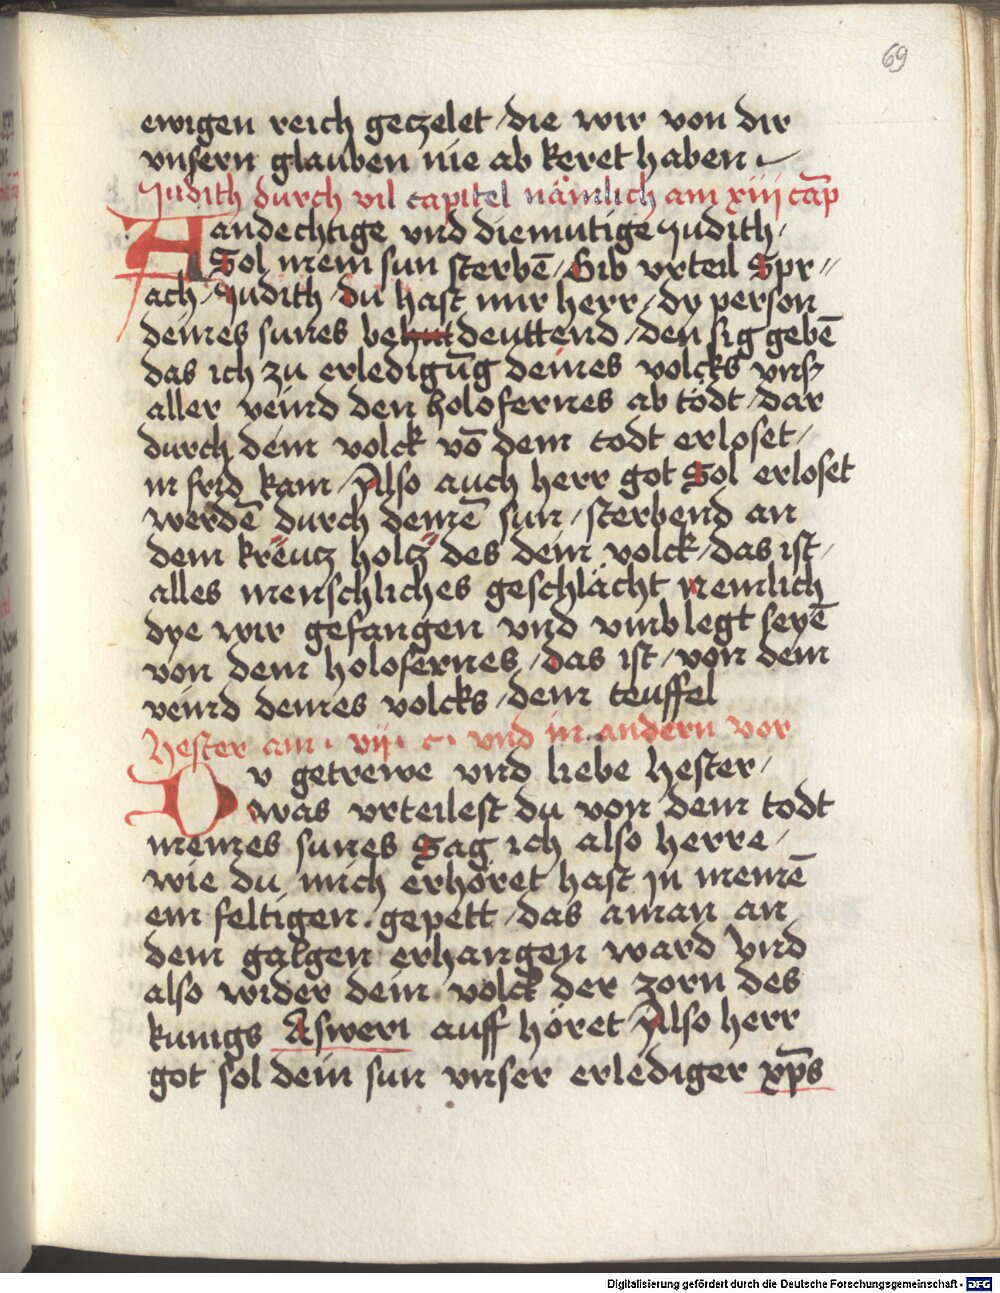 69
ewigen reich geczelet / die wir von dir
vnsern glauben nie ab keret haben .
Judith durch vil capitel nämlich am xiij cap̄
Aandechtige vnd diemutige Judith /
Sol mein sun sterbē / Gib vrteil Spr//
ach / Judith / du hast mir herr / dy person
deines sunes behut deuttend / den sig gebē
das ich zu erledigūg deines volcks vns
aller veind den holofernes ab tödt / dar
durch dein volck vō dem todt erloset /
in frid kam / Also auch herr got Sol erloset
werdē durch deinē sun / sterbend an
dem kreütz holtz des dein volck / das ist /
alles menschliches geschlächt nemlich
dye wir gefangen vnd vmblegt seyē
von dem holofernes / das ist / von dem
veind deines volcks / dem teuffel
Hester am . vij . c . vnd in andern vor
Dv getrewe vnd liebe Hester /
was vrteilest du von dem todt
meines sunes Sag ich also herre /
wie du mich erhöret hast jn meinē
ein feltigen . gepett / das aman an
dem galgen erhangen ward Vnd
also wider dein volck der zorn des
kunigs Asweri auff höret / Also herr
got sol dein sun vnser erlediger xp̄s
Digitalisierung gefördert durch die Deutsche Forschungsgemeinschaft - DFG